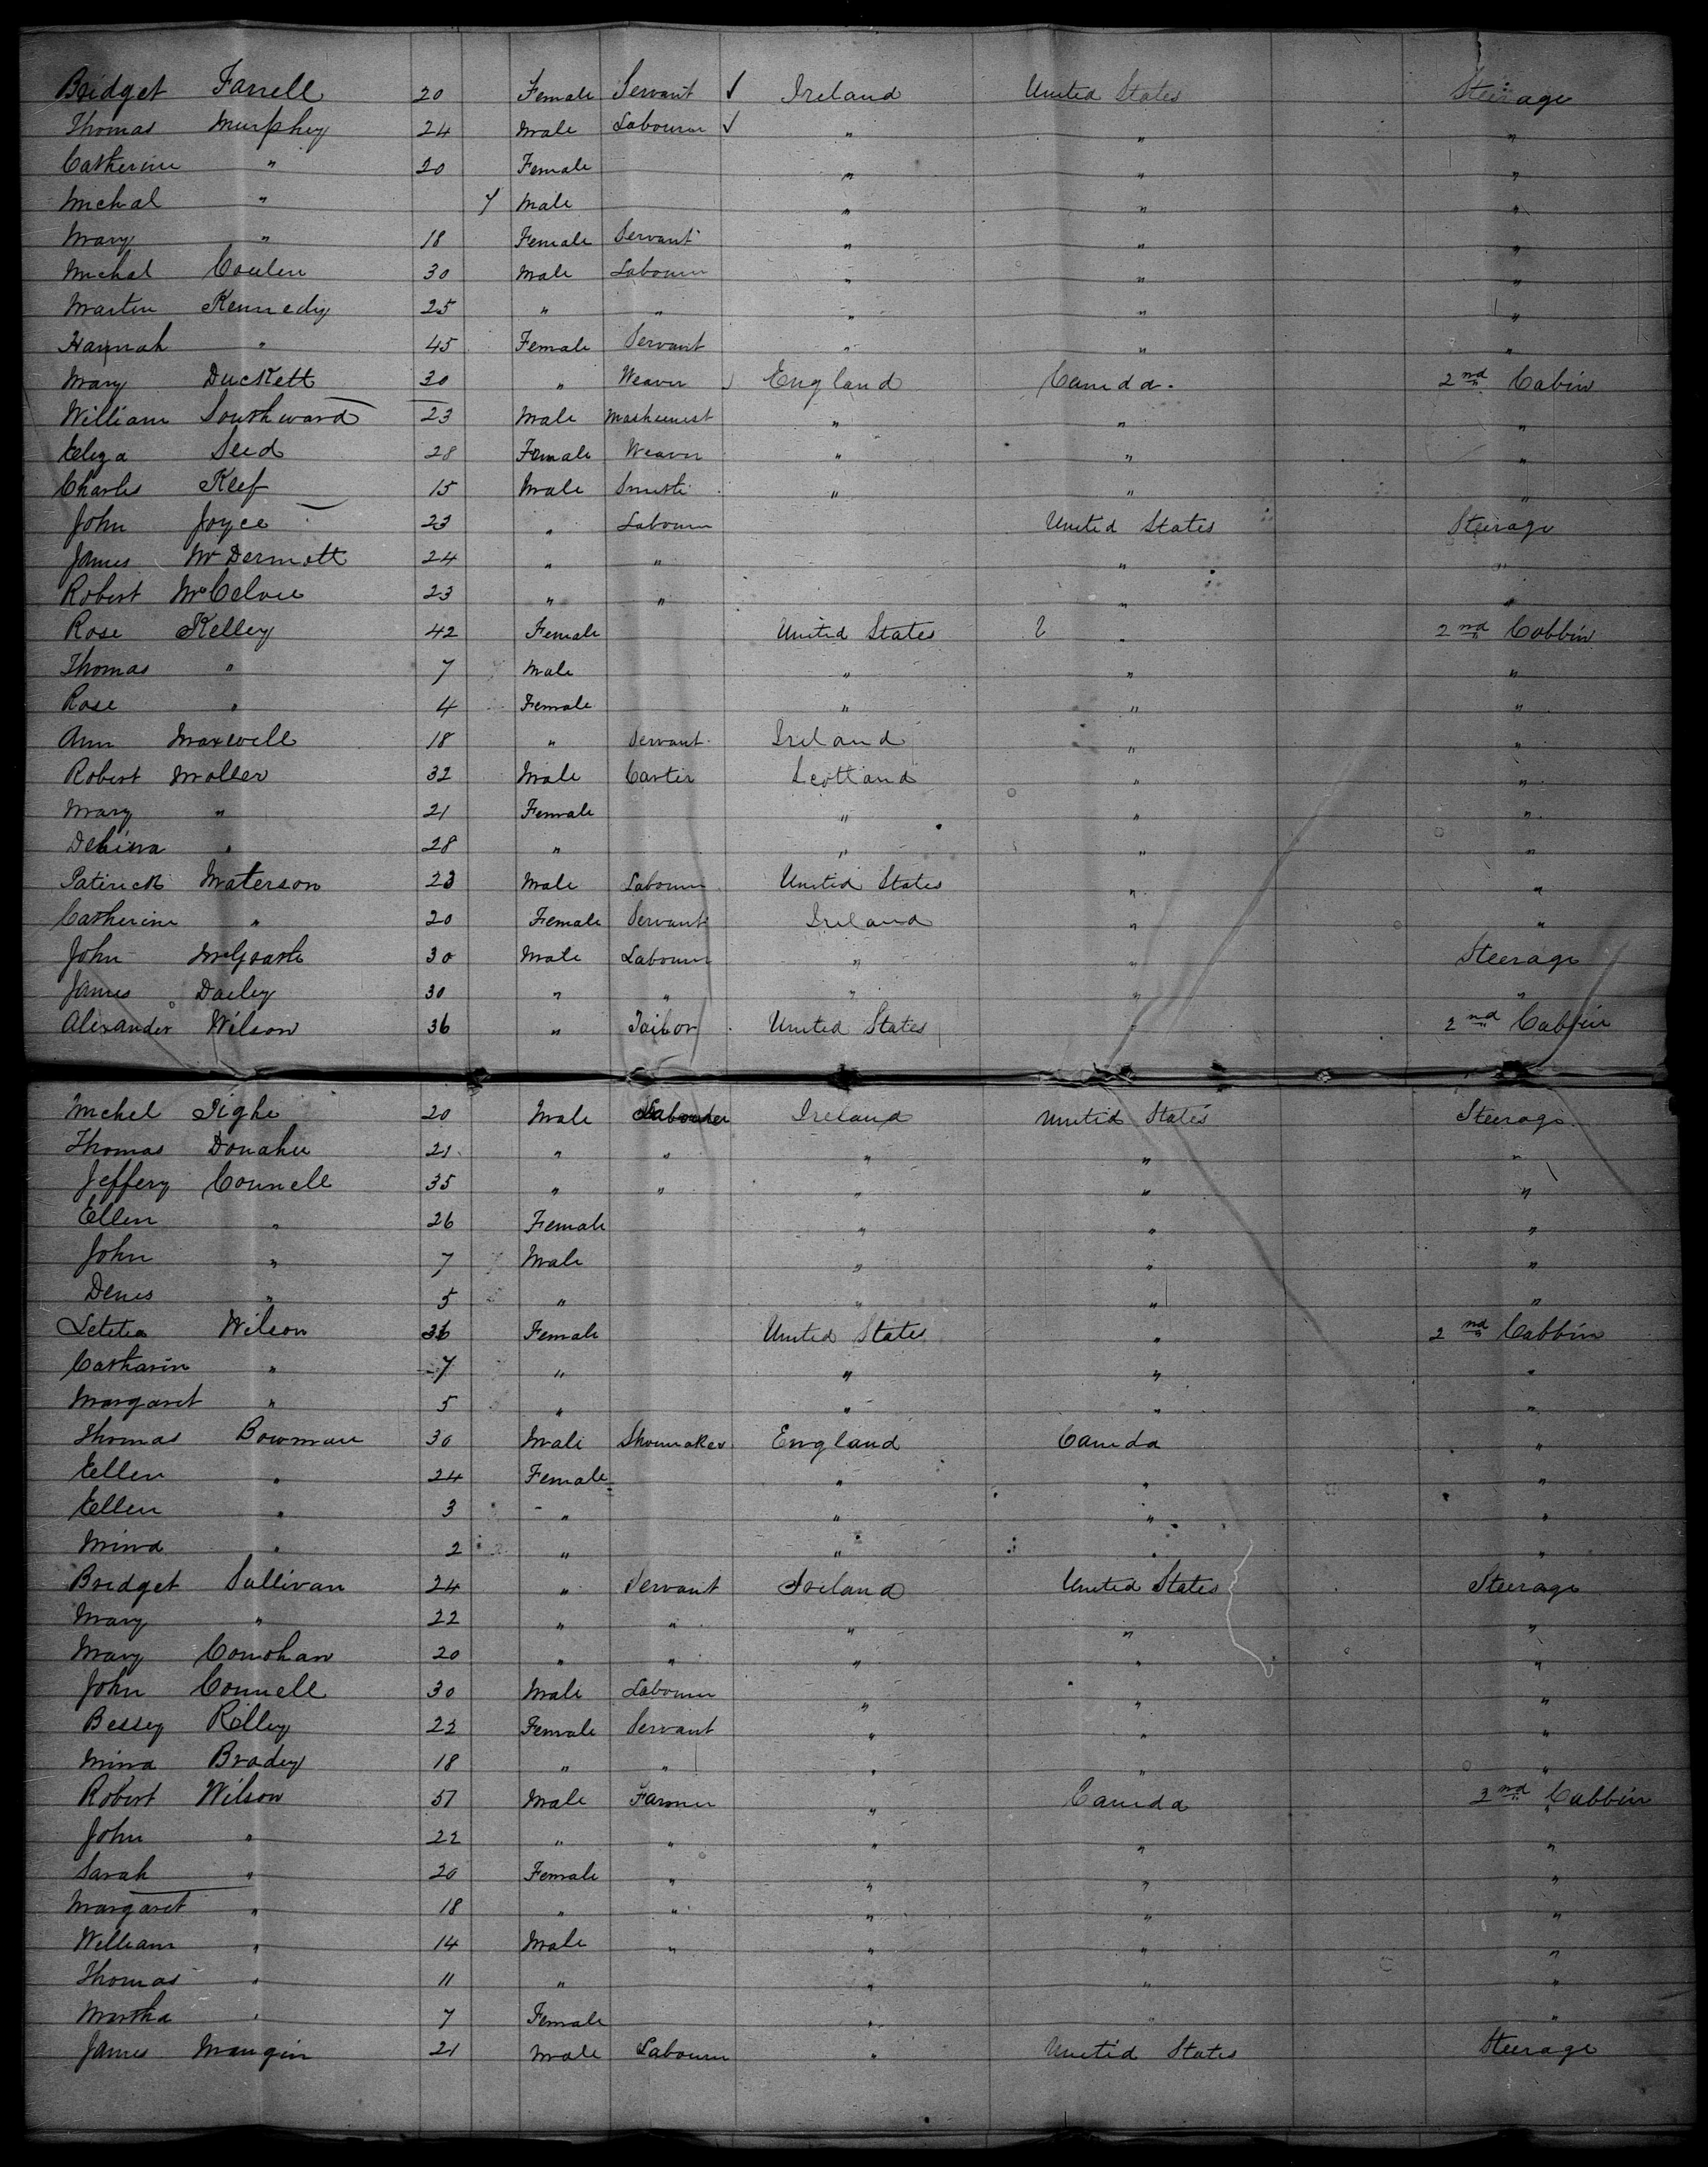 Bridget Farrell 20 Female Servant ✓ Ireland United States Steerage
Thomas Murphey 24 Male Labourer ✓ " " "
Catherine " 20 Female " " "
Michal " Male " " "
Mary " 18 Female Servant " " "
Michal 30 Male Labourer " " "
Martin Kennedy 25 " " " " "
Hannah " 45 Female Servant " " "
Mary Duckett 30 " Weaver England Canida 2nd Cabin
William Southward 23 Male " " "
Eliza Seed 28 Female Weaver " " "
Charles Keef 15 Male " " "
John Joyce 23 " Labourer United States Steerage
James McDermott 24 " " " "
Robert 23 " " " "
Rose Kelley 42 Female United States " 2nd Cabbin
Thomas " 7 Male " " "
Rose " 4 Female " " "
Ann Maxwell 18 " Servant Ireland " "
Robert Moller 32 Male Carter Scottland " "
Mary " 21 Female " " "
" 28 " " " "
Patirick Materson 23 Male Labourer United States " "
Catherine " 20 Female Servant Ireland " "
John McGrath 30 Male Labourer " " Steerage
James Dailey 30 " " " " "
Alexander Wilson 36 " Tailor United States " 2nd Cabbin
Michel Tighe 20 Male Labourer Ireland United States Steerage
Thomas Donahue 21 " " " " "
Jeffery Connell 35 " " " " "
Ellen " 26 Female " " "
John " 7 Male " " "
Denis " 5 " " " "
Letitia Wilson 36 Female United States " 2nd Cabbin
Catharin " 7 " " " "
Margaret " 5 " " " "
Thomas Bowman 30 Male Shoemaker England Canida "
Ellen " 24 Female " " "
Ellen " 3 " " " "
Minna " 2 " " " "
Bridget Sullivan 24 " Servant Ireland United States Steerage
Mary " 22 " " " " "
Mary Conohan 20 " " " " "
John Connell 30 Male Labourer " " "
Bessey Rilley 22 Female Servant " " "
Minna Bradey 18 " " " " "
Robert Wilson 51 Male Farmer " Canida 2nd Cabbin
John " 22 " " " " "
Sarah " 20 Female " " " "
Margaret " 18 " " " " "
William " 14 Male " " " "
Thomas " 11 " " " "
Martha " 7 Female " " "
James Mangin 21 Male Labourer " United States Steerage